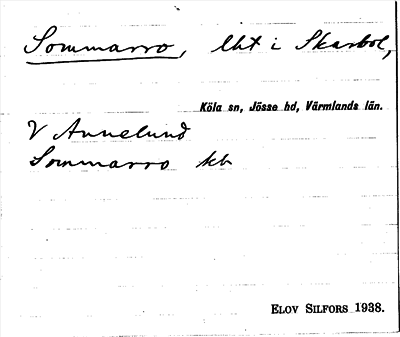 Sommarro, lht i Skarbol,
Köla sn, Jösse hd, Värmlands län.
V Annelund
Sommarro kb
ELOV SILFORS 1938.